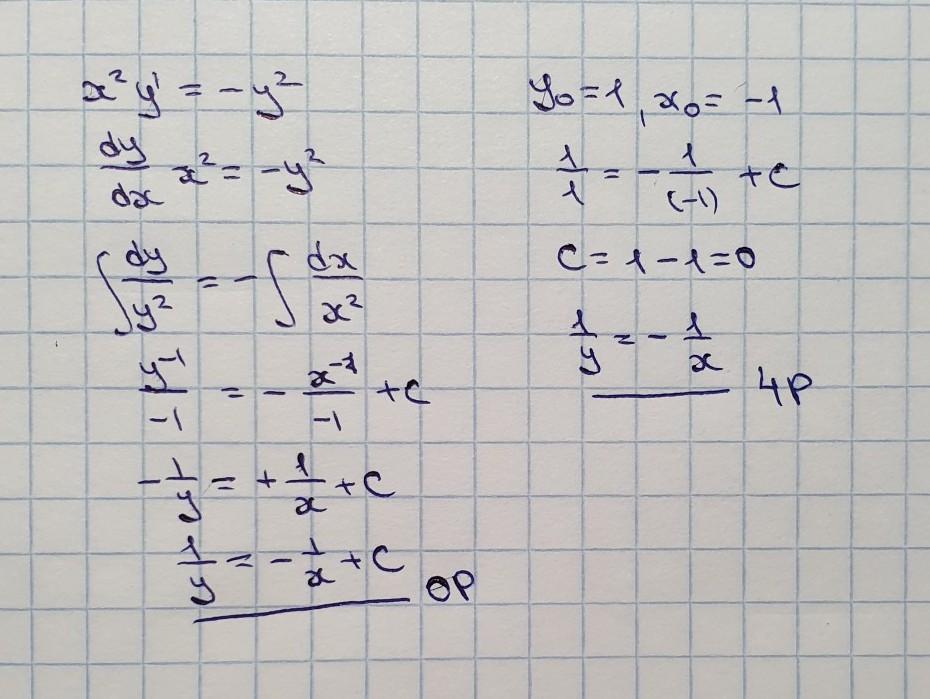 x² y' = -y²
dy/dx x² = -y²
∫ dy/y² = -∫ dx/x²
y⁻¹/-1 = - x⁻¹/-1 + C
- 1/y = + 1/x + C
1/y = - 1/x + C ОР
y₀ = 1, x₀ = -1
1/1 = - 1/(-1) + C
C = 1 - 1 = 0
1/y = - 1/x ЧР